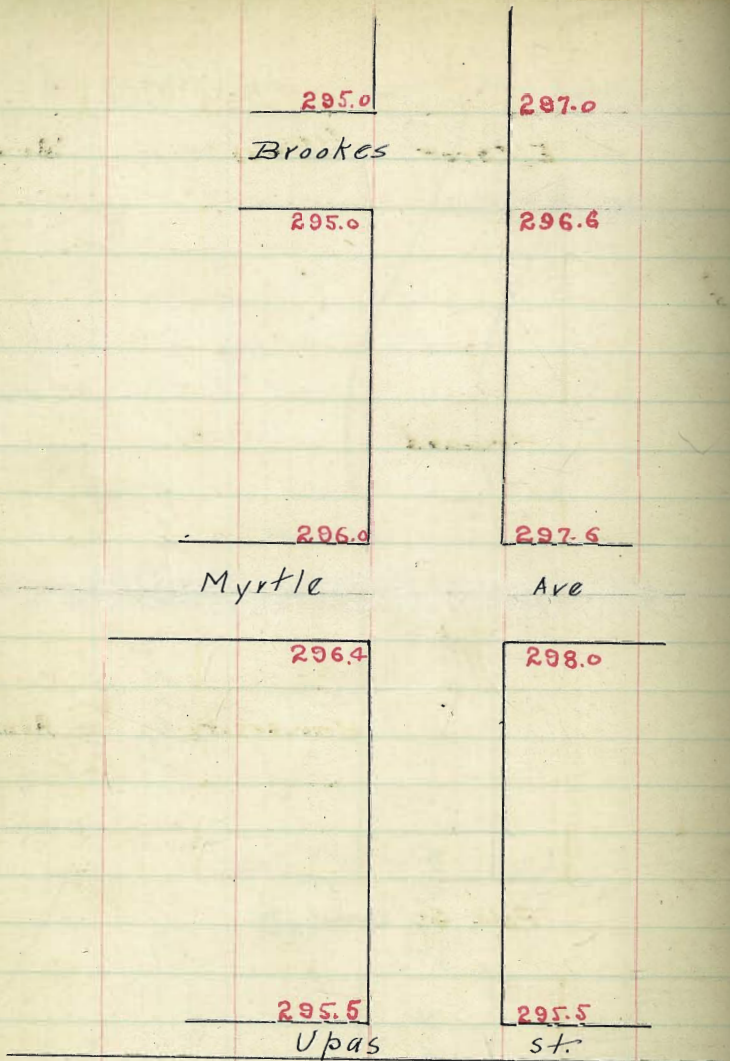 295.0 297.0
Brookes
295.0 296.6
296.0 297.6
Myrtle Ave
296.4 298.0
295.5 295.5
Upas st